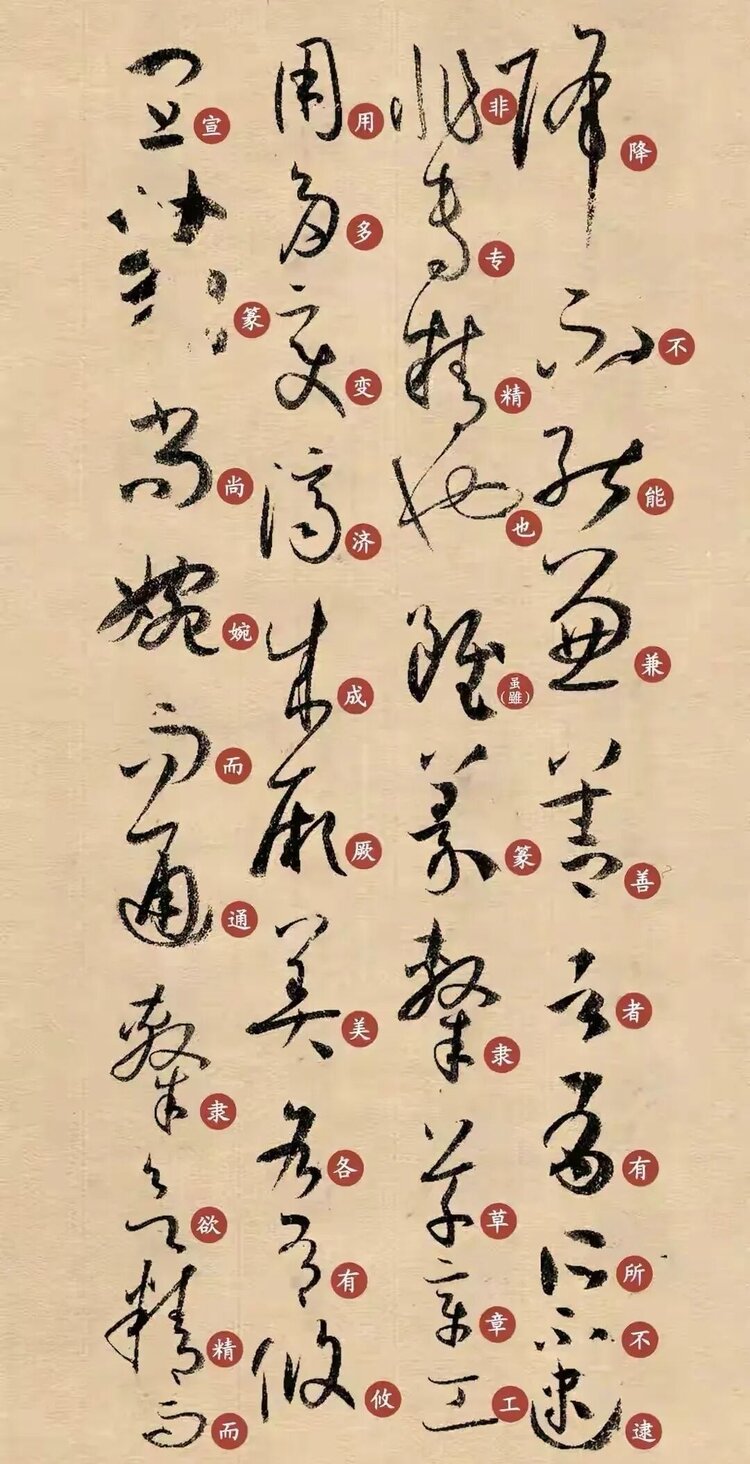 降不能兼善者有所不逮
非专精也虽(雖)篆隶草章工
用多变济成厥美各有攸
宣篆尚婉而通隶欲精而